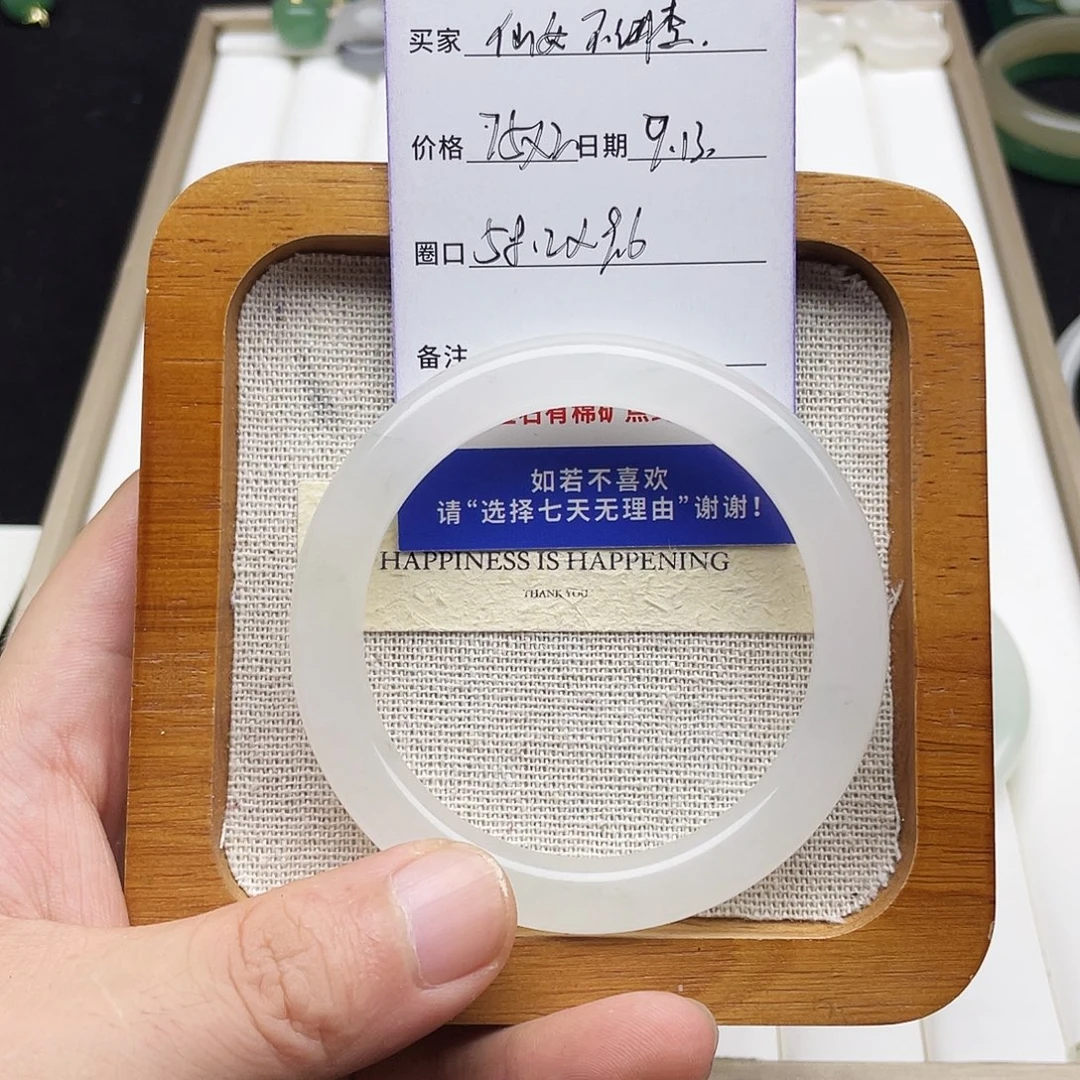 买家 仙女不倒查.
价格 75X2 日期 9.13
圈口 58.2X9.6
备注
石有棉矿点
如若不喜欢
请“选择七天无理由”谢谢!
HAPPINESS IS HAPPENING
THANK YOU